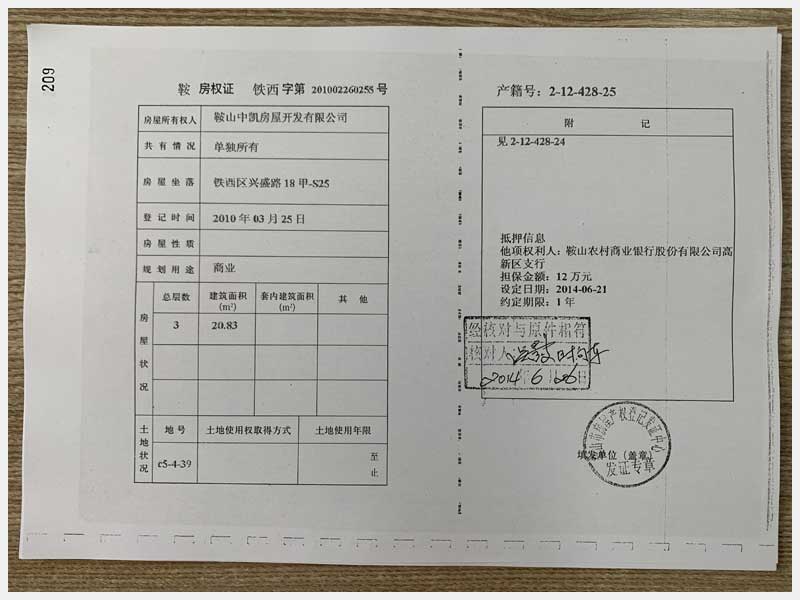 209
鞍 房权证 铁西 字第 201002260255 号
房屋所有权人 鞍山中凯房屋开发有限公司
共有情况 单独所有
房屋坐落 铁西区兴盛路 18 甲-S25
登记时间 2010 年 03 月 25 日
房屋性质
规划用途 商业
房屋状况
总层数 建筑面积(m²) 套内建筑面积(m²) 其他
3 20.83
土地状况
地号 土地使用权取得方式 土地使用年限
c5-4-39 至
止
产籍号: 2-12-428-25
附 记
见 2-12-428-24
抵押信息
他项权利人: 鞍山农村商业银行股份有限公司高
新区支行
担保金额: 12 万元
设定日期: 2014-06-21
约定期限: 1 年
经核对与原件相符
核对人
2014 6 26日
山市房屋产权登记发证中心
填发单位(盖章)
发证专章